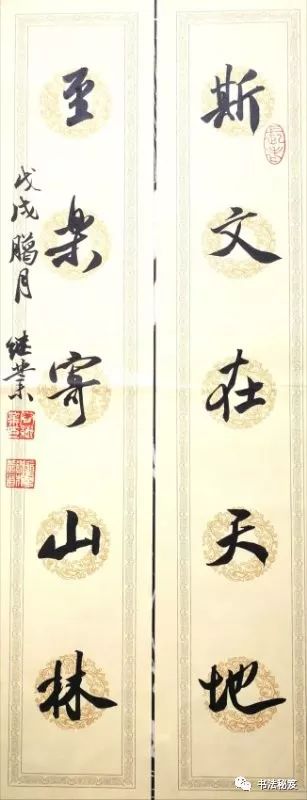 斯文在天地
至乐寄山林
戊戌腊月 继业
书法秘笈